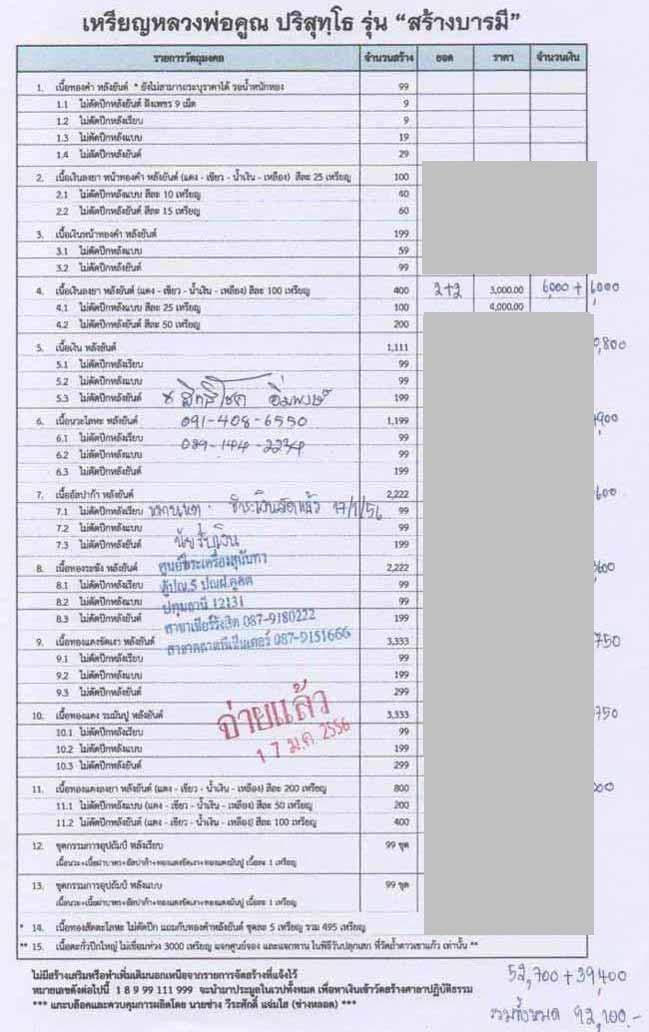 เหรียญหลวงพ่อคูณ ปริสุทฺโธ รุ่น “สร้างบารมี”
รายการวัตถุมงคล จำนวนสร้าง ยอด ราคา จำนวนเงิน
1. เนื้อทองคำ หลังยันต์ * ยังไม่สามารถระบุราคาได้ รอน้ำหนักทอง 99
1.1 ไม่ตัดปีกหลังยันต์ ฝังเพชร 9 เม็ด 9
1.2 ไม่ตัดปีกหลังเรียบ 9
1.3 ไม่ตัดปีกหลังแบบ 19
1.4 ไม่ตัดปีกหลังยันต์ 29
2. เนื้อเงินลงยา หน้าทองคำ หลังยันต์ (แดง - เขียว - น้ำเงิน - เหลือง) สีละ 25 เหรียญ 100
2.1 ไม่ตัดปีกหลังแบบ สีละ 10 เหรียญ 40
2.2 ไม่ตัดปีกหลังยันต์ สีละ 15 เหรียญ 60
3. เนื้อเงินหน้าทองคำ หลังยันต์ 199
3.1 ไม่ตัดปีกหลังแบบ 59
3.2 ไม่ตัดปีกหลังยันต์ 99
4. เนื้อเงินลงยา หลังยันต์ (แดง - เขียว - น้ำเงิน - เหลือง) สีละ 100 เหรียญ 400 2+2 3,000.00 6,000 + 6,000
4.1 ไม่ตัดปีกหลังแบบ สีละ 25 เหรียญ 100 4,000.00
4.2 ไม่ตัดปีกหลังยันต์ สีละ 50 เหรียญ 200
5. เนื้อเงิน หลังยันต์ 1,111 ,800
5.1 ไม่ตัดปีกหลังเรียบ 99
5.2 ไม่ตัดปีกหลังแบบ 99
5.3 ไม่ตัดปีกหลังยันต์ 199
6. เนื้อนวะโลหะ หลังยันต์ 091-408-6550 1,199 900
6.1 ไม่ตัดปีกหลังเรียบ 99
6.2 ไม่ตัดปีกหลังแบบ 089-144-2234 99
6.3 ไม่ตัดปีกหลังยันต์ 199
7. เนื้ออัลปาก้า หลังยันต์ 2,222 600
7.1 ไม่ตัดปีกหลังเรียบ หมายเหตุ. ชำระเงินสดแล้ว 17/1/56 99
7.2 ไม่ตัดปีกหลังแบบ 99
7.3 ไม่ตัดปีกหลังยันต์ ผู้รับเงิน 199
8. เนื้อทองระฆัง หลังยันต์ ศูนย์พระเครื่องสุนันทา 2,222 ,600
8.1 ไม่ตัดปีกหลังเรียบ ตู้ปณ.5 ปณฝ.คูคต 99
8.2 ไม่ตัดปีกหลังแบบ ปทุมธานี 12131 99
8.3 ไม่ตัดปีกหลังยันต์ สาขาเซียร์รังสิต 087-9180222 199
9. เนื้อทองแดงขัดเงา หลังยันต์ 087-9151666 3,333 750
9.1 ไม่ตัดปีกหลังเรียบ 99
9.2 ไม่ตัดปีกหลังแบบ 199
9.3 ไม่ตัดปีกหลังยันต์ 299
10. เนื้อทองแดง รมมันปู หลังยันต์ จ่ายแล้ว 3,333 750
10.1 ไม่ตัดปีกหลังเรียบ 17 ม.ค. 2556 99
10.2 ไม่ตัดปีกหลังแบบ 199
10.3 ไม่ตัดปีกหลังยันต์ 299
11. เนื้อทองแดงลงยา หลังยันต์ (แดง - เขียว - น้ำเงิน - เหลือง) สีละ 200 เหรียญ 800 00
11.1 ไม่ตัดปีกหลังแบบ (แดง - เขียว - น้ำเงิน - เหลือง) สีละ 50 เหรียญ 200
11.2 ไม่ตัดปีกหลังยันต์ (แดง - เขียว - น้ำเงิน - เหลือง) สีละ 100 เหรียญ 400
12. ชุดกรรมการอุปถัมป์ หลังเรียบ 99 ชุด
เนื้อนวะ+เนื้อฝาบาตร+อัลปาก้า+ทองแดงขัดเงา+ทองแดงมันปู เนื้อละ 1 เหรียญ
13. ชุดกรรมการอุปถัมป์ หลังแบบ 99 ชุด
เนื้อนวะ+เนื้อฝาบาตร+อัลปาก้า+ทองแดงขัดเงา+ทองแดงมันปู เนื้อละ 1 เหรียญ
* 14. เนื้อทองสัตตะโลหะ ไม่ตัดปีก แถมกับทองคำหลังยันต์ ชุดละ 5 เหรียญ รวม 495 เหรียญ
** 15. เนื้อตะกั่วปีกใหญ่ ไม่เชื่อมห่วง 3000 เหรียญ แจกศูนย์จอง และแจกทาน ในพิธีวันปลุกเสก ที่วัดถ้ำดาวเขาแก้ว เท่านั้น **
ไม่มีสร้างเสริมหรือทำเพิ่มเติมนอกเหนือจากรายการจัดสร้างที่แจ้งไว้ 52,700 + 39,400
หมายเลขดังต่อไปนี้ 1 8 9 99 111 999 จะนำมาประมูลในเวปทั้งหมด เพื่อหาเงินเข้าวัดสร้างศาลาปฏิบัติธรรม
*** แกะบล๊อคและควบคุมการผลิตโดย นายช่าง วีระศักดิ์ แจ่มใส (ช่างหลอด) *** รวมทั้งหมด 92,100.-